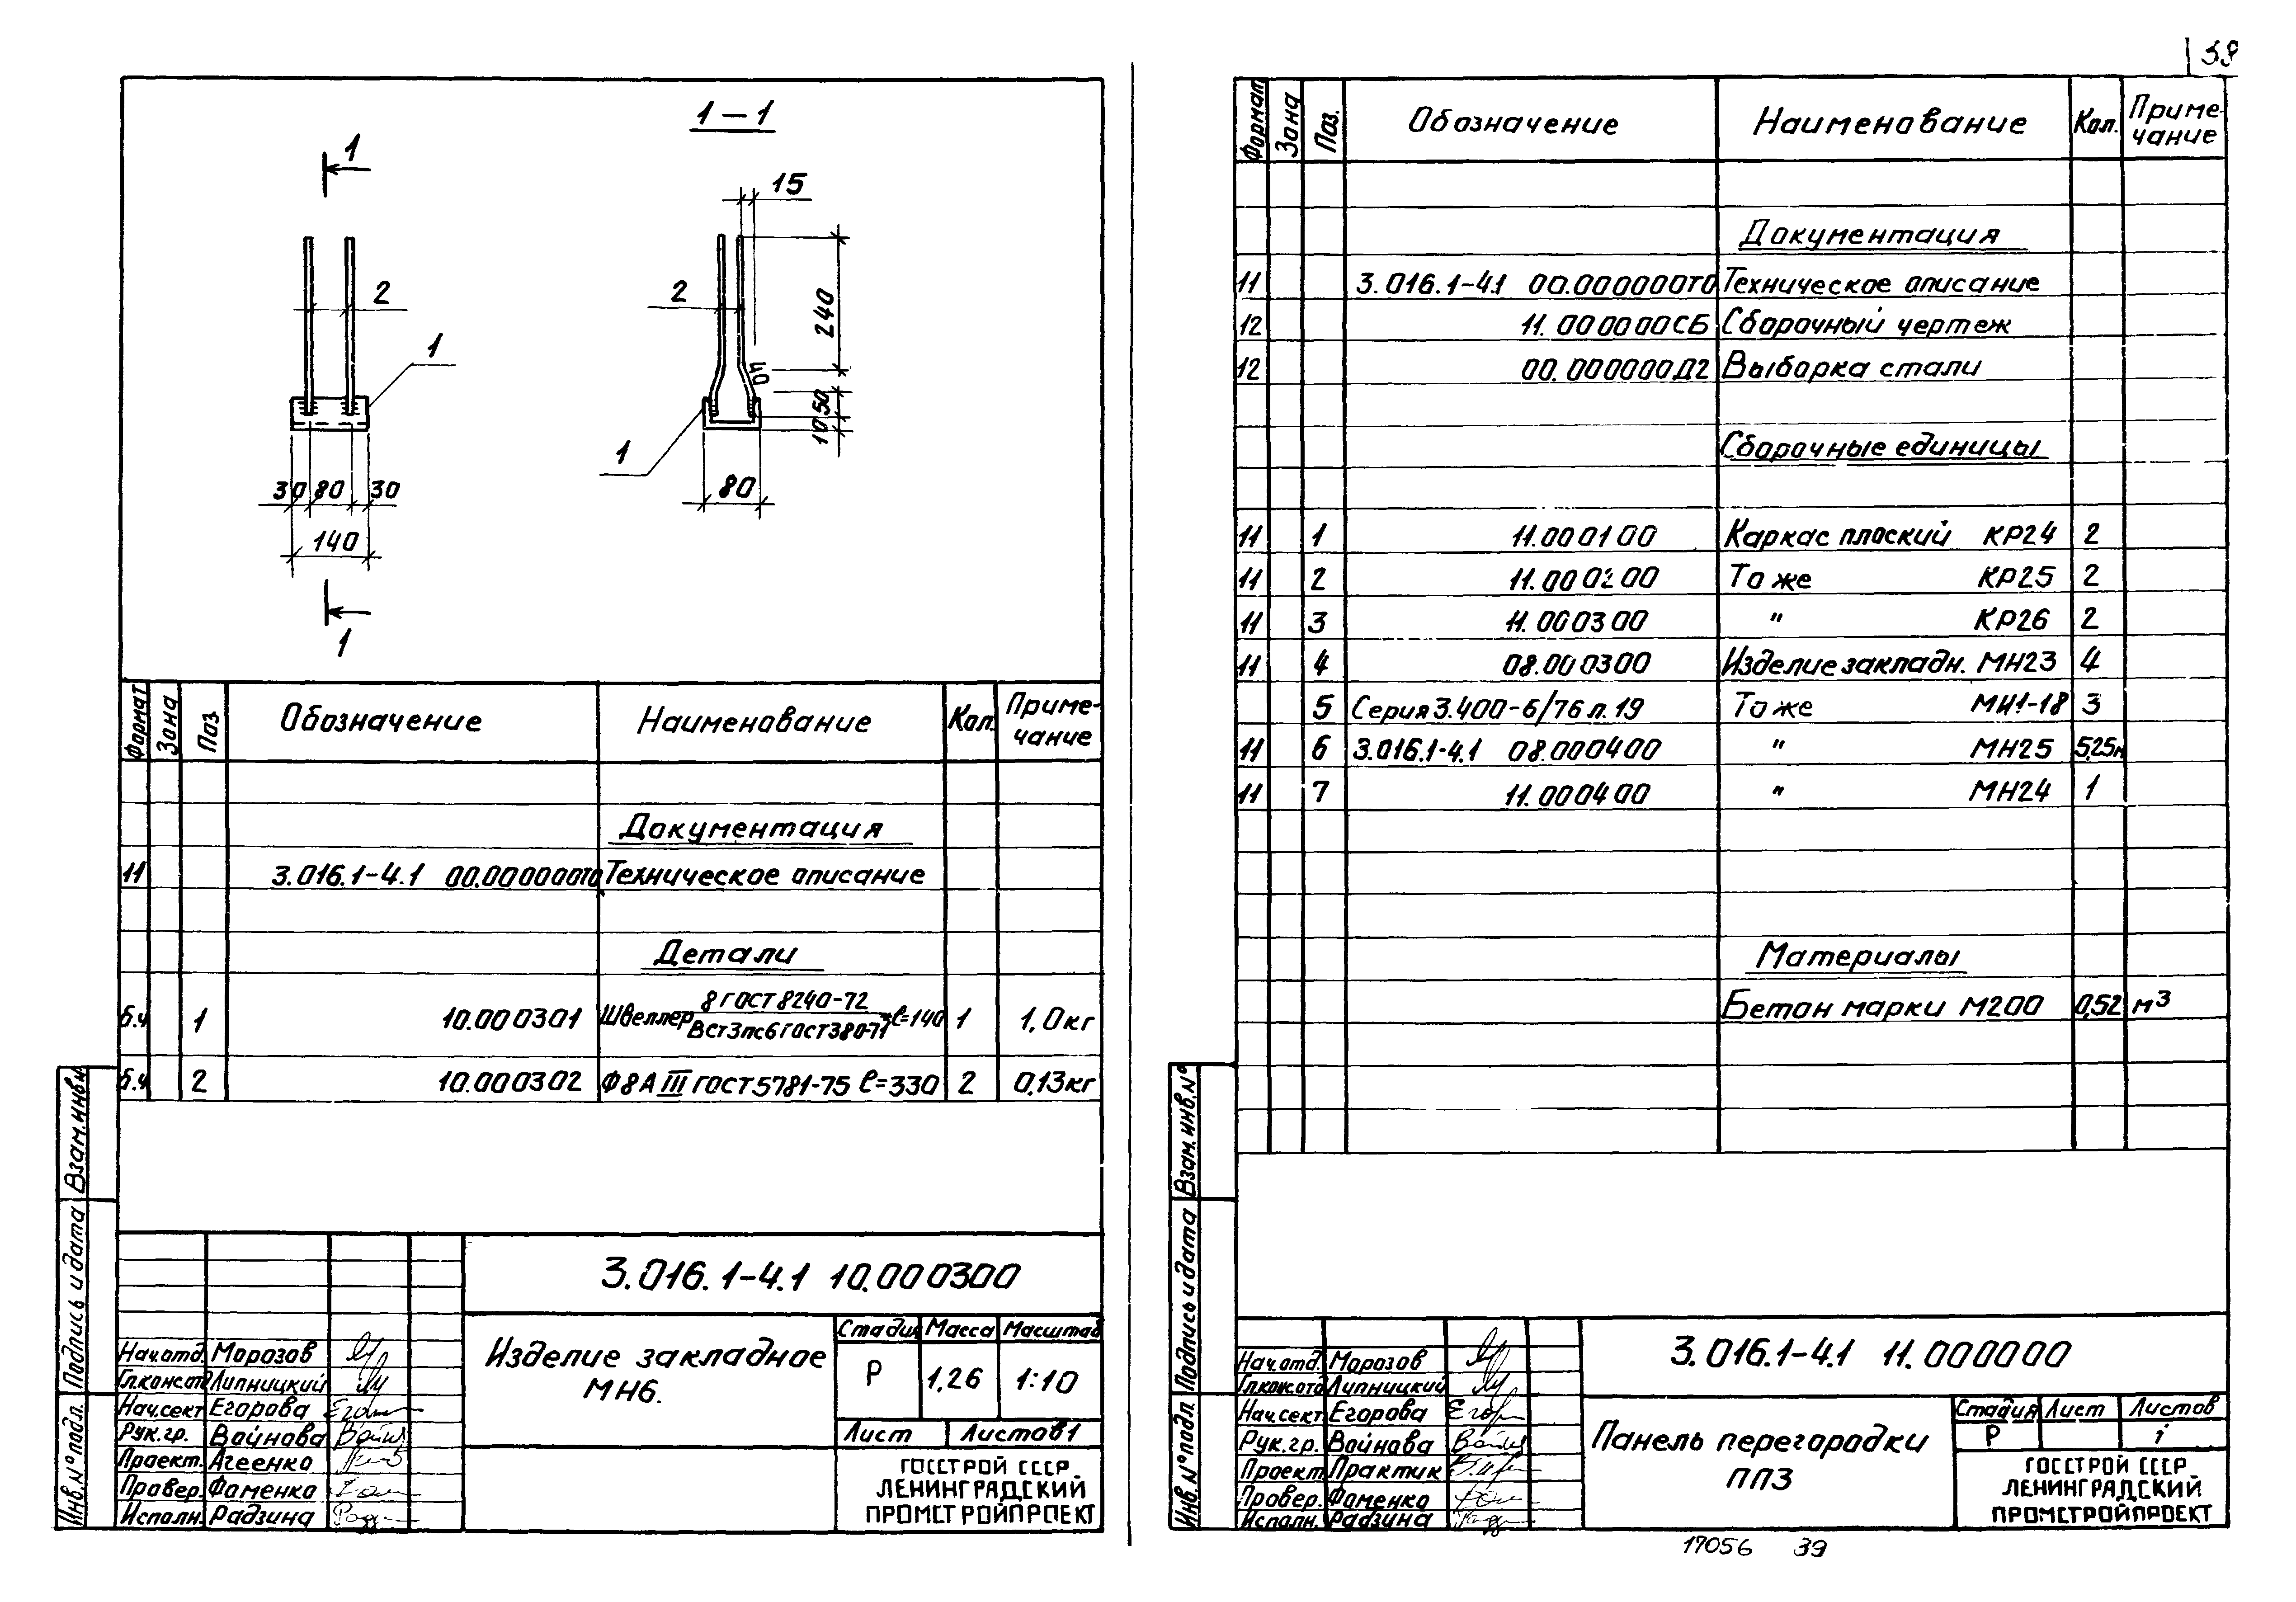 1-1
1
15
2
2
240
1
40
50
10
1
30 80 30
80
140
1
Формат Зона Поз. Обозначение Наименование Кол. Приме-
чание
Документация
11 3.016.1-4.1 00.000000ТО Техническое описание
Детали
б.ч 1 10.000301 Швеллер 8 ГОСТ 8240-72 / ВСт3пс6 ГОСТ 380-71 ℓ=140 1 1,0кг
б.ч 2 10.000302 Ф8АIII ГОСТ 5781-75 ℓ=330 2 0,13кг
Взам.инв.№
Подпись и дата
Инв.№ подл.
3.016.1-4.1 10.000300
Изделие закладное
МН6.
Стадия Масса Масштаб
Р 1,26 1:10
Лист Листов 1
Нач.отд. Морозов
Гл.конс.отд Липницкий
Нач.сект Егорова
Рук.гр. Войнова
Проект. Агеенко
Провер. Фоменко
Исполн. Радзина
ГОССТРОЙ СССР
ЛЕНИНГРАДСКИЙ
ПРОМСТРОЙПРОЕКТ
39
Формат Зона Поз. Обозначение Наименование Кол. Приме-
чание
Документация
11 3.016.1-4.1 00.000000ТО Техническое описание
12 11.000000СБ Сборочный чертеж
12 00.000000Д2 Выборка стали
Сборочные единицы
11 1 11.000100 Каркас плоский КР24 2
11 2 11.000200 То же КР25 2
11 3 11.000300 " КР26 2
11 4 08.000300 Изделие закладн. МН23 4
5 Серия 3.400-6/76 л.19 То же МИ1-18 3
11 6 3.016.1-4.1 08.000400 " МН25 5,25м
11 7 11.000400 " МН24 1
Материалы
Бетон марки М200 0,52 м³
Взам.инв.№
Подпись и дата
Инв.№ подл.
3.016.1-4.1 11.000000
Панель перегородки
ПП3
Стадия Лист Листов
Р 1
Нач.отд. Морозов
Гл.конс.отд Липницкий
Нач.сект Егорова
Рук.гр. Войнова
Проект Практик
Провер. Фоменко
Исполн. Радзина
ГОССТРОЙ СССР
ЛЕНИНГРАДСКИЙ
ПРОМСТРОЙПРОЕКТ
17056 39